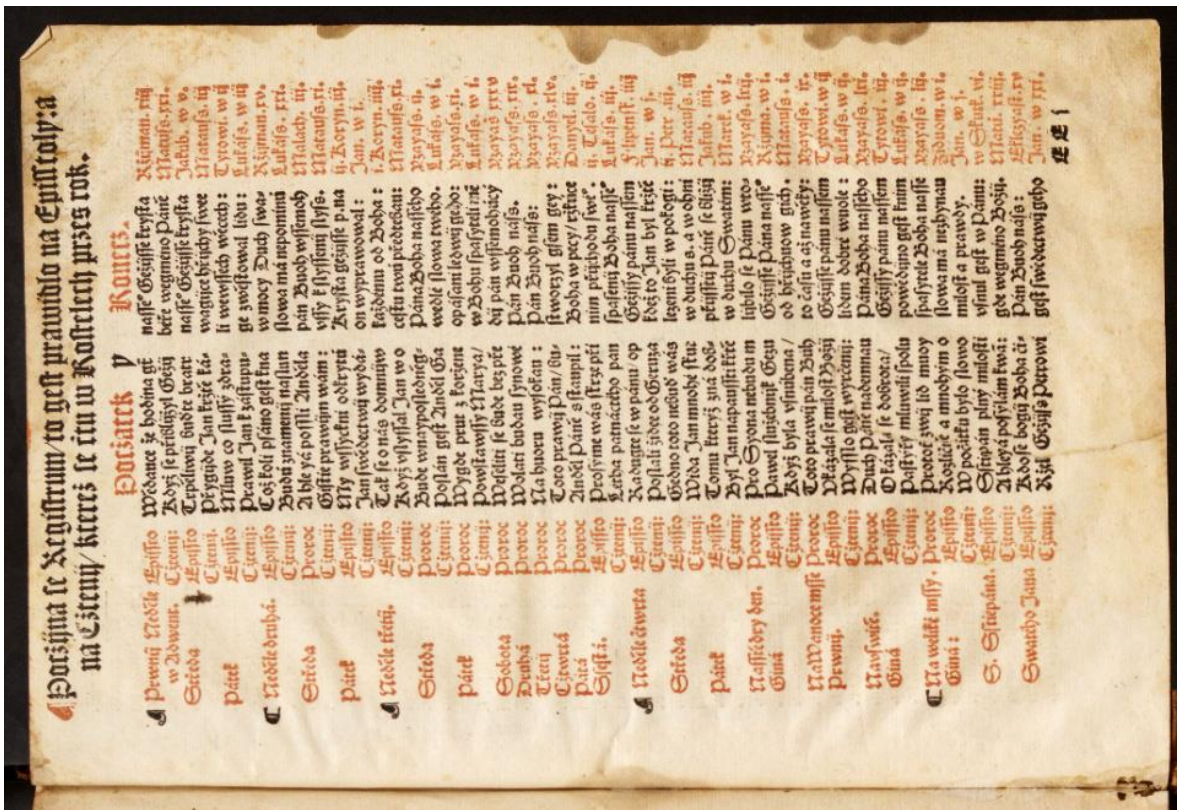 Počžijna se Registrum/ to gest prawidlo na Episstoly: a
na Cžtenij/ kterež se čtu w Kostelech przes rok.
Počžátek y Konecž.
Prwnij Neděle Epissto Wědauce že hodina gt nasse° Gežijsse krysta Ržijman. xiij
w Adwent. Cžtenij: Když se přibližyl Gežij běře wegmeno Páně Matauss. xxi.
Středa Epissto Trpěliwij buďte bratr nasse° Gežijsse krysta Jakub. w v.
Cžtenij. Přygijde Jan křtě ká- wagijce hřijchy swee Matauss. iij
Pátek Epissto Mluw co slussij zdra- li wewssech wěcech: Tymo. w ij
Cžtenij: Prawil Jan k zástupu- ge zwěstowal lidu: Lukáss. w iij
Neděle druhá. Epissto Cožkoli psáno gest k na w mocy Duch swa- Ržijman. xv.
Cžtenij: Budú znamenij na slun slowa má nepominú Lukáss. xxi.
Středa Proroc Ahle yá posslij Anděla Pan Buoh wssemoh Malach. iij.
Cžtenij: Gistie prawijm wám: vssij k slyssenij slyss. Matauss. xi.
Pátek Epissto My wssyckni odkrytú Krysta gežijsse p. na ij. Koryn. iij.
Cžtenij: Jan swědectwij wydá- on wyprawowal: Jan w i.
Neděle třetij. Epissto Tak se o nás domnijw každemu od Boha: i. Koryn. iiij.
Cžtenij: Když vslyssal Jan w o cestu twú před tebau: Matauss. xi.
Středa Proroc Bude w nayposlednieg- Pána Boha nasseho Yzayáss. ij.
Cžtenij: Poslán gest Anděl Ga wedle slowa tweho. Lukáss. w i.
Pátek Proroc Wygde prut z kořene opásanij ledwij geho: Yzayáss. xi.
Cžtenij: Powstawssy Marya/ w Bohu spasyteli mé Lukáss. w i.
Sobota Proroc Weseliti se bude bez pře dij pán wssemohúcý Yzayáss xxxv
Druhá Proroc Wolati budau synowé Pán Buoh nass. Yzayáss. xix.
Třetij Proroc Na huoru wysokau: Pán Buoh nass: Yzayáss. xl.
Cžtwrtá Proroc Toto prawij Pán/ bu- stworzyl gsem gey: Yzayáss. xlv.
Pátá Proroc Anděl Páně sstaupil: Boha w pecy/ rzkuce Danyel. iij.
Ssestá. Epissto Prosyme wás skrze přij nim přijchodu swe°. ij. Tesalo. ij.
Cžtenij: Letha patnácteho pan spasenij Boha nasse° Lukáss. iij
Neděle čtwrta Epissto Radugte se w pánu/ op Gežijssy pánu nassem Filipenst. iiij
Cžtenij: Poslali židee od Geruza kdež to Jan byl křtě Jan. w j.
Středa Epissto Gedno toto nebuď wás lezeni byli w pokogi: ij. Petr. iij.
Cžtenij: Wida Jan mnohé z fuc w duchu s. a w ohni Matauss. iij
Pátek Epissto Tomu kterýž zná dob- přijsstij Páně se bližij Jakub. iiij.
Cžtenij: Byl Jan na paussti křtě w duchu Swatém: Marek. w i.
Na Sstědry den. Proroc Pro Syona nebudu m lijbilo se Pánu w to- Yzayáss. lxij.
Giná Epissto Pawel služebnik Gežu Gežijsse Pána nasse° Ržijma. w i.
Cžtenij: Když byla vsnúbena/ od hřijchuow gich. Matauss. i.
Na Wánoce msse Proroc Toto prawij pán Buh to času a až na wěky: Yzayáss. ix.
Prwnij. Epissto Vkázala se milost Božij Gežijsse pánu nassem Tytowi. w ij
Cžtenij: Wysslo gest wyrčenij: lidem dobré wuole: Lukáss. w ij.
Na vswitě. Proroc Duch Páně nademnau Pána Boha nasseho Yzayáss. lxj.
Giná Epissto Okázala se dobrota/ Gežijssy pánu nassem Tytowi. iij.
Cžtenij: Pastýři mluwili spolu powědijno gest k nim Lukáss. w ij
Na weliké mssy. Proroc Protož zwij lid muoy spasytele Boha nasse Yzayáss. lij.
Giná: Epissto Rozličně a mnohým o slowa má nezhynau Židuom. w i.
Cžtenij: W počátku bylo slowo milosti a prawdy. Jan. w j.
S. Sstiepána. Epissto Sstiepán plný milosti vsnul gest w Pánu: w Skutk. vi.
Cžtenij: Ahle yá posýlám k wá: gde we gméno Božij. Matt. xxiij.
Swateho Jana Epissto Kdo se bogij Boha či- Pán Buoh nass: Ekležyast. xv
Cžtenij: Ržekl Gežijs Petrowi gest swědectwij geho Jan. w xxi.